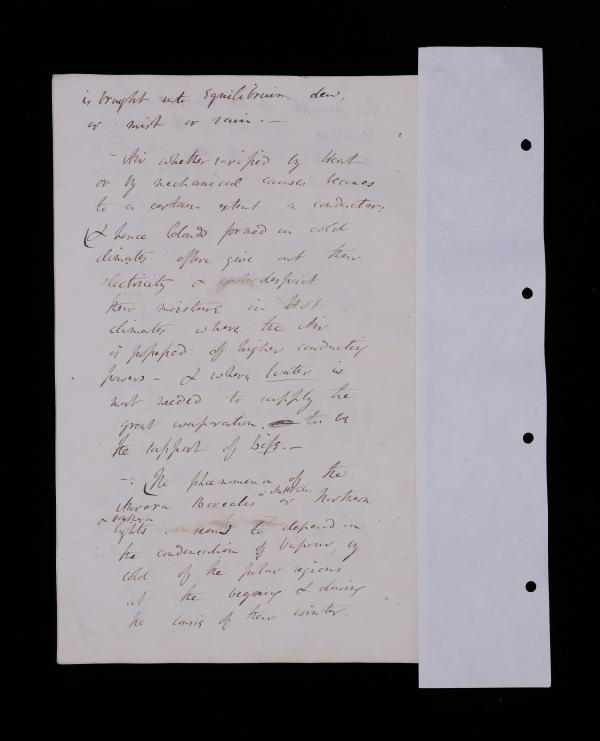 is brought into Equilibrium dew,
or mist or rain. —
- Air whether rarified by Heat
or by mechanical causes becomes
to a certain extent a conductor;
(& hence Clouds formed in cold
climates often give out their
electricity & deposit
their moisture in Hot
climates where the Air
is possessed of higher conducting
powers - & where Water is
most needed to supply the
great evaporation to be
the support of life. —
-: (The phænomena of the
Aurora Borealis & Australis or Northern
& Southern
lights seems to depend on
the condensation of Vapour, by
cold of the polar regions
at the begining & during
the course of their winter.